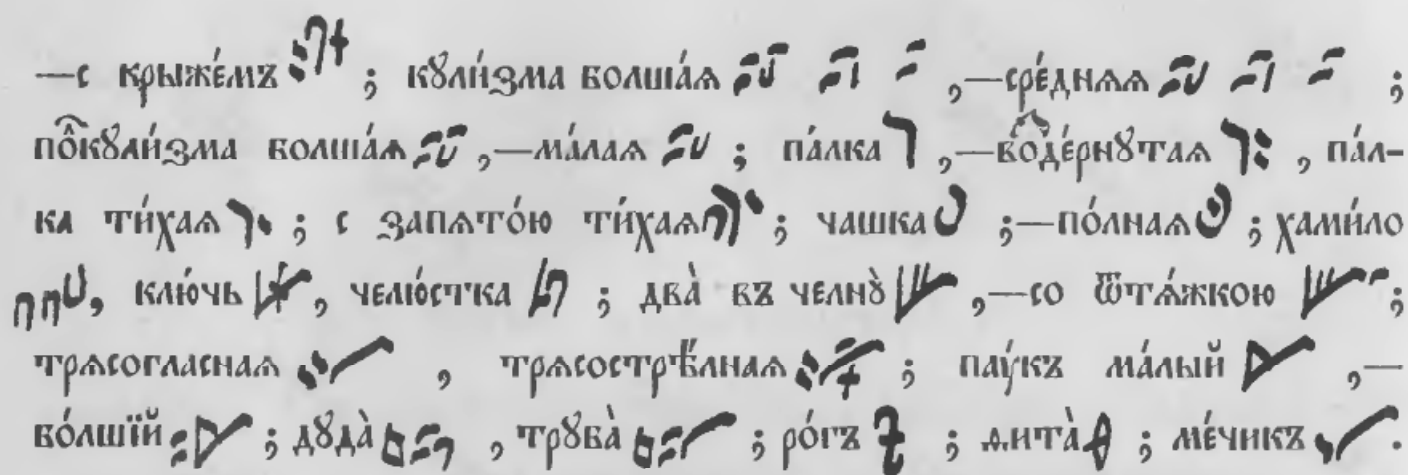 —с крыже́мъ ; кꙋли́зма болша́ѧ , —сре́днѧѧ ;
по̑кꙋли́зма болша́ѧ , —ма́лаѧ ; па́лка , —воде́рнꙋтаѧ , па́л-
ка ти́хаѧ ; с запѧто́ю ти́хаѧ ; чашка ; —по́лнаѧ ; хами́ло
, клю́чь , челю́стка ; два̀ въ челнꙋ̀ , —со ѿтѧ́жкою ;
трѧсогласнаѧ , трѧсострѣ́лнаѧ ; паꙋ́къ ма́лый , —
бо́лшїй ; дꙋда̀ , трꙋба̀ ; ро́гъ ; ѳита̀ ; ме́чикъ .